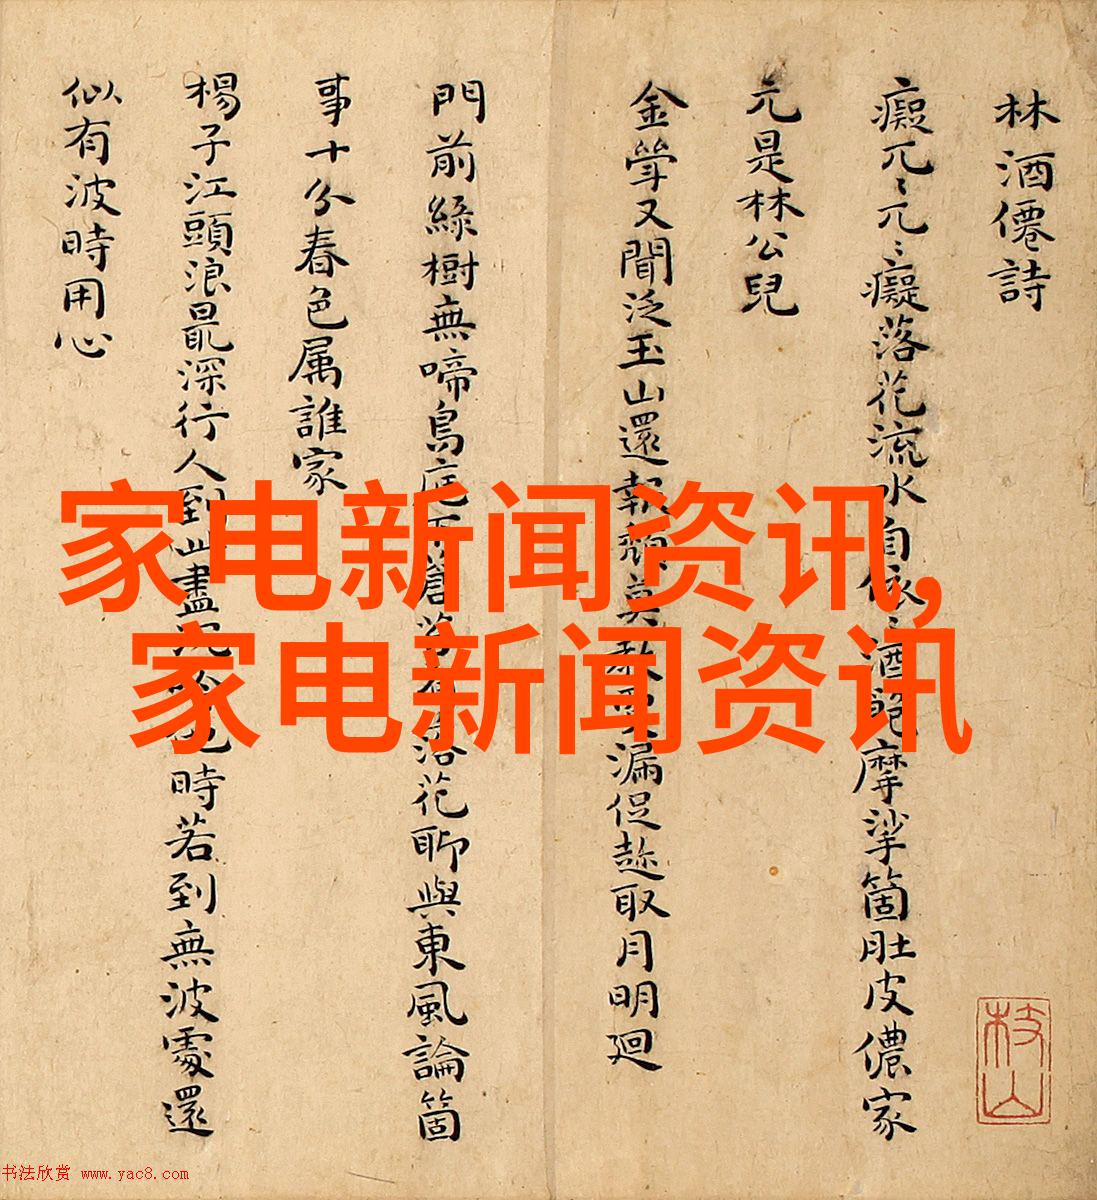 林酒僊詩
癡兀〻兀〻癡落花流水自依〻酒飽摩挲箇肚皮儂家
元是林公兒
金斝又聞泛玉山還報頹莫教更漏促趂取月明迴
門前綠樹無啼鳥庭下蒼苔有落花聊與東風論箇
事十分春色属誰家
楊子江頭浪最深行人到此盡沉吟他時若到無波處還
似有波時用心
枝山
家电新闻资讯,
家电新闻资讯
书法欣赏 www.yac8.com